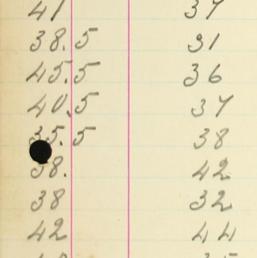 41 37
38.5 31
45.5 36
40.5 37
35.5 38
38. 42
38 32
42 44